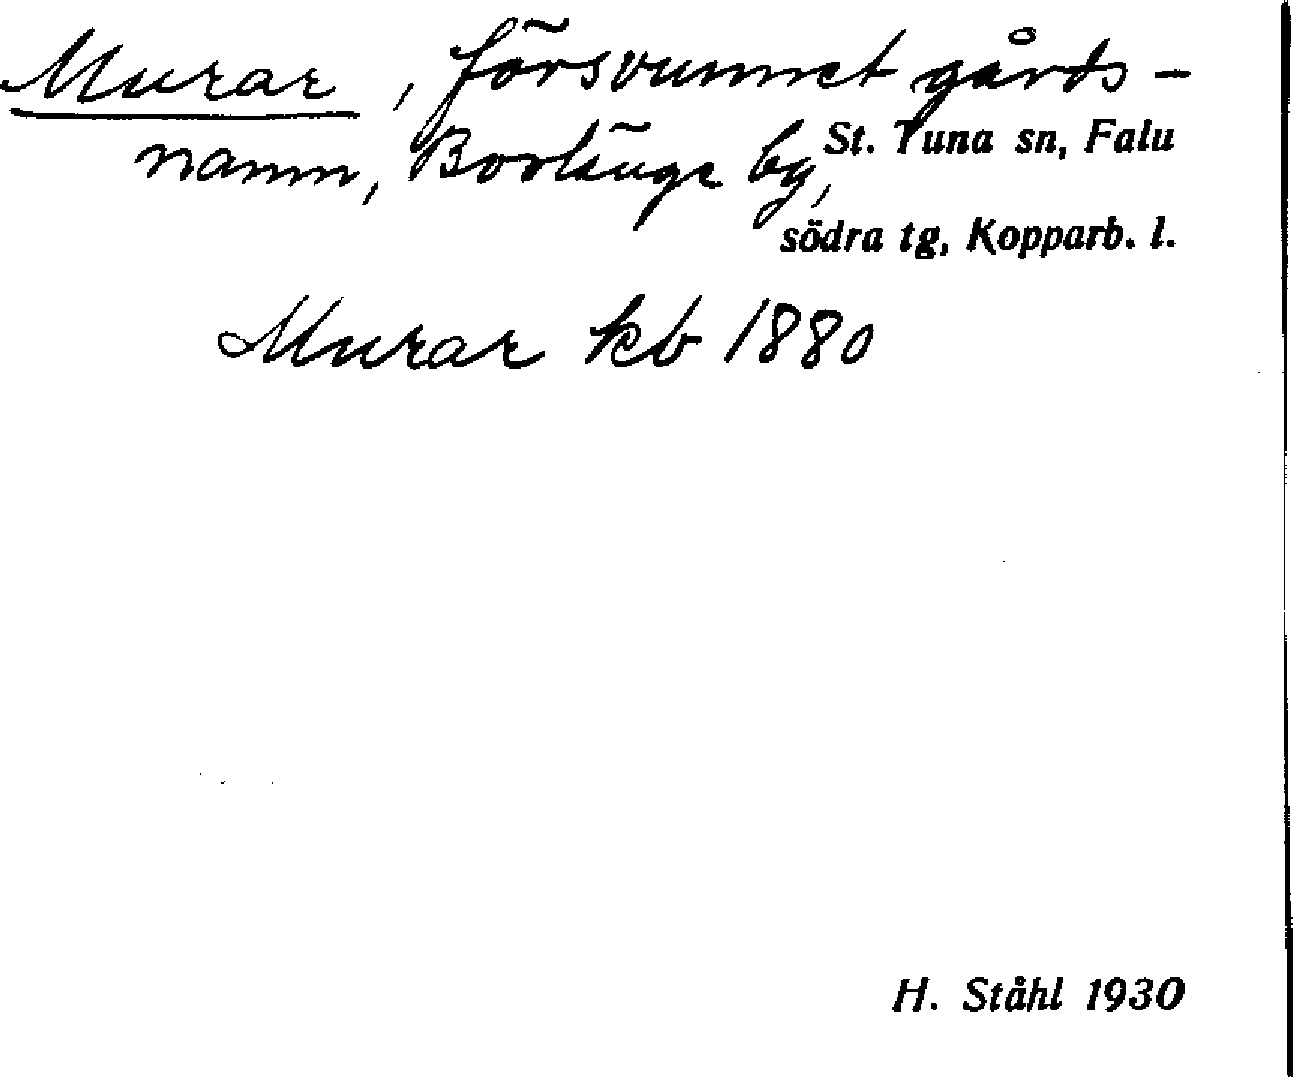 Murar, försvunnet gårds-
namn, Borlänge by, St. Tuna sn, Falu
södra tg, Kopparb. l.
Murar kb 1880
H. Ståhl 1930